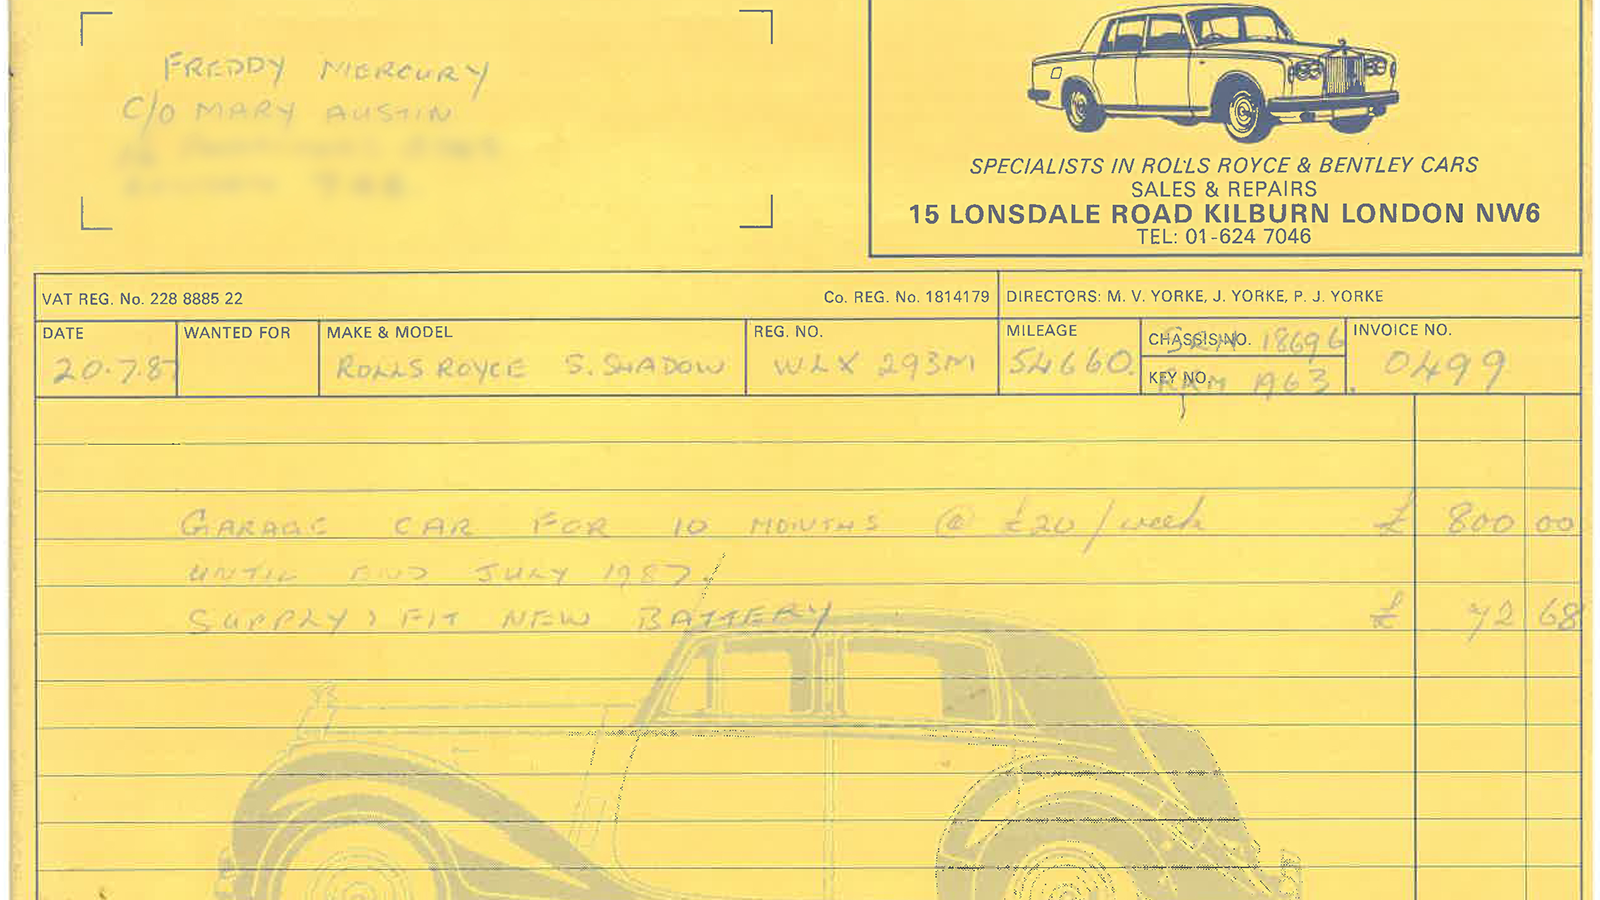 FREDDY MERCURY
C/O MARY AUSTIN
SPECIALISTS IN ROLLS ROYCE & BENTLEY CARS
SALES & REPAIRS
15 LONSDALE ROAD KILBURN LONDON NW6
TEL: 01-624 7046
VAT REG. No. 228 8885 22 Co. REG. No. 1814179 DIRECTORS: M. V. YORKE, J. YORKE, P. J. YORKE
DATE WANTED FOR MAKE & MODEL REG. NO. MILEAGE CHASSIS NO. SRH 18696 INVOICE NO.
20.7.87 ROLLS ROYCE S. SHADOW WLX 293M 54660. KEY NO. 1963 0499
GARAGE CAR FOR 10 MONTHS @ £20/week £ 800 00
UNTIL END JULY 1987
SUPPLY & FIT NEW BATTERY £ 72 68